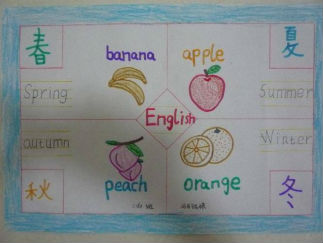 春 banana apple 夏
Spring Summer
English
autumn Winter
秋 peach orange 冬